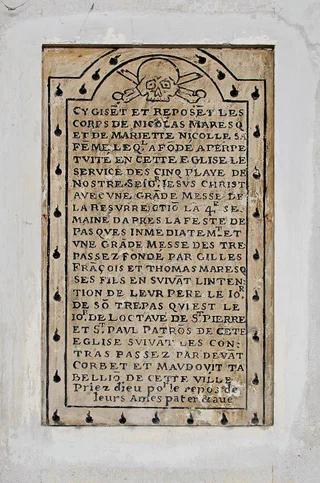 CY GISĒT ET REPOSĒT LES
CORPS DE NICOLAS MARESQ
ET DE MARIETTE NICOLLE SA
FĒME LEQL A FŌDE A PERPE
TVITE EN CETTE EGLISE LE
SERVICE DES CINQ PLAYE DE
NOSTRE SEIGR IESVS CHRIST
AVEC VNE GRĀDE MESSE DE
LA RESVRRECTIŌ LA 4E SE
MAINE DAPRES LA FESTE DE
PASQVES INMEDIATEMT ET
VNE GRĀDE MESSE DES TRE
PASSEZ FONDE PAR GILLES
FRĀÇOIS ET THOMAS MARESQ
SES FILS EN SVIVĀT LINTEN
TION DE LEVR PERE LE IOR
DE SŌ TREPAS QVI EST LE
IOR DE LOCTAVE DE ST PIERRE
ET ST PAVL PATRŌS DE CETE
EGLISE SVIVĀT LES CON:
TRAS PASSEZ PAR DEVĀT
CORBET ET MAVDOVIT TA
BELLIŌ DE CETTE VILLE
Priez dieu por le repos de
leurs Ames pater & aue